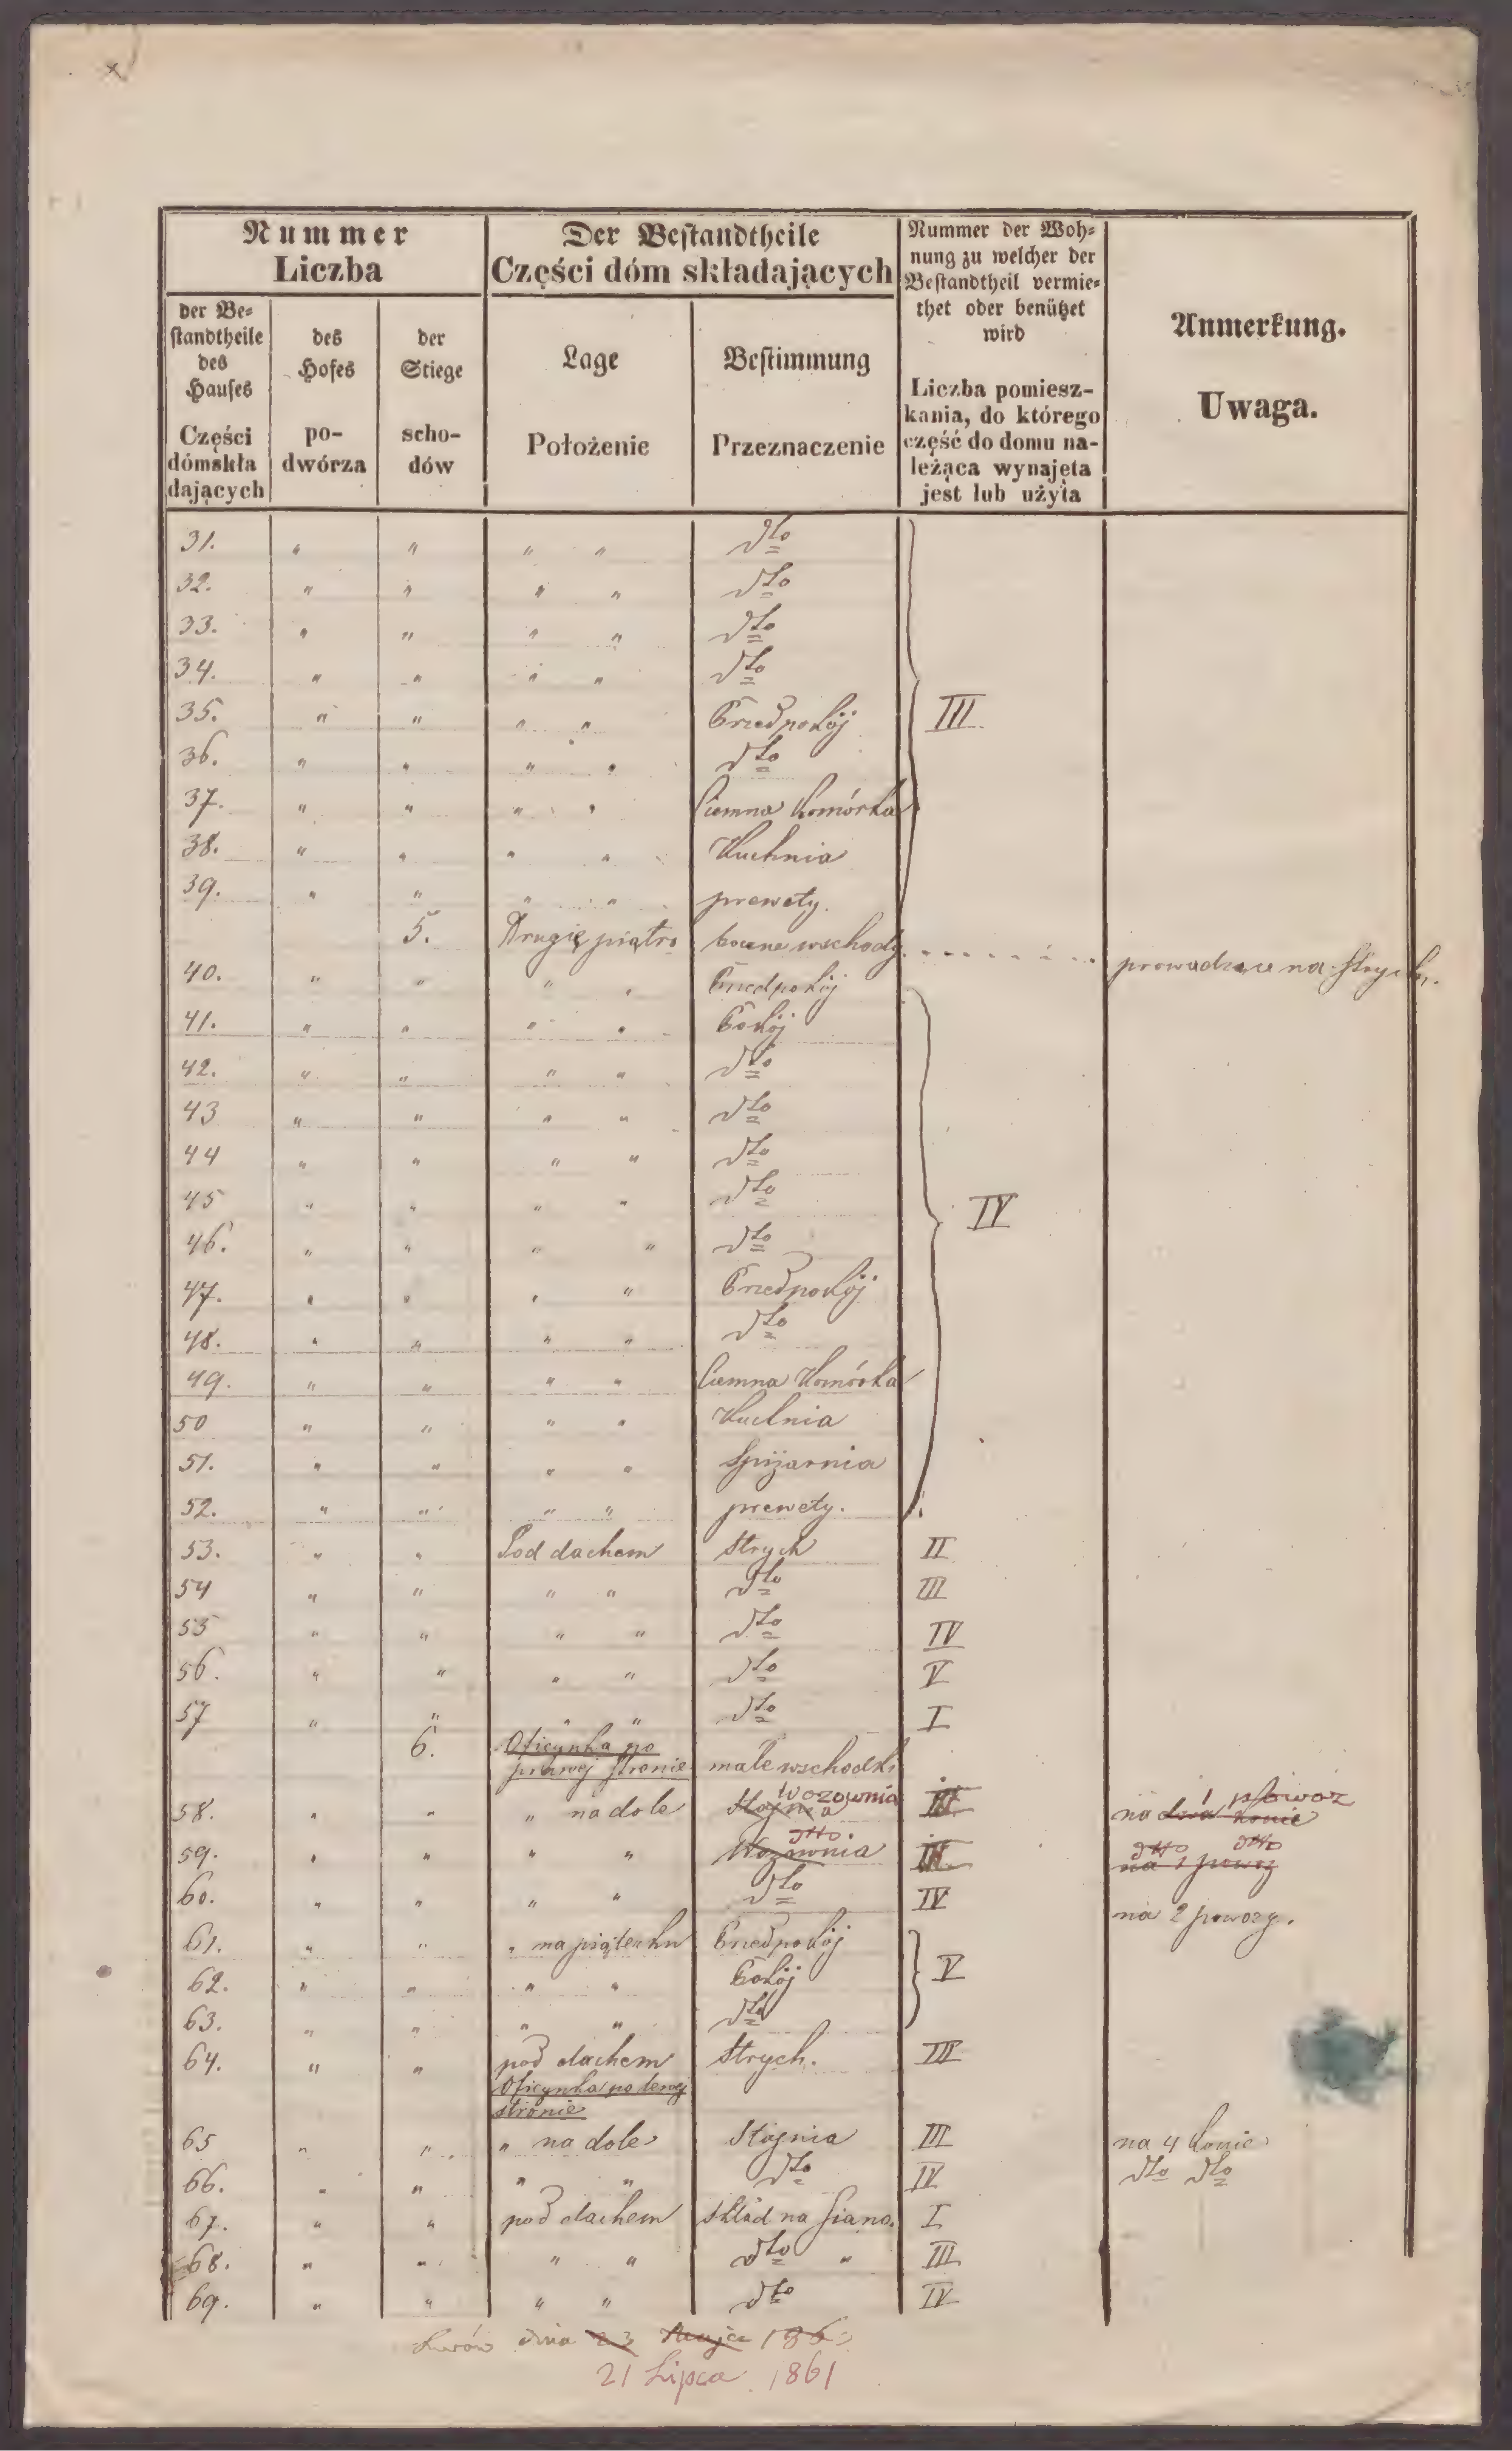 Nummer
Liczba
der Be-
standtheile
des
Hauses
Części
dómskła
dających
des
Hofes
po-
dwórza
der
Stiege
scho-
dów
Der Bestandtheile
Części dóm składających
Lage
Położenie
Bestimmung
Przeznaczenie
Nummer der Woh-
nung zu welcher der
Bestandtheil vermie-
thet oder benützet
wird
Liczba pomiesz-
kania, do którego
część do domu na-
leżąca wynajęta
jest lub użyta
Anmerkung.
Uwaga.
31. " " " " dto
32. " " " " dto
33. " " " " dto
34. " " " " dto
35. " " " " Przedpokój III
36. " " " " dto
37. " " " " Ciemna komórka
38. " " " " Kuchnia
39. " " " " prewety.
5. Drugie piątro boczne wschody prowadzące na strych.
40. " " " " Przedpokój
41. " " " " Pokój
42. " " " " dto
43 " " " " dto
44 " " " " dto
45 " " " " dto IV
46. " " " " dto
47. " " " " Przedpokój
48. " " " " dto
49. " " " " Ciemna Komórka
50 " " " " Kuchnia
51. " " " " Spiżarnia
52. " " " " prewety.
53. " " Pod dachem strych II
54 " " " " dto III
55 " " " " dto IV
56. " " " " dto V
57 " " " " dto I
6. Oficynka po
prawej stronie małe wschodki
Wozownia powóz
58. " " " na dole Stajnia III na 1 dwa konie
dtto. dtto dtto
59. " " " " Wozownia III na 1 powóz
60. " " " " dto IV na 2 powozy.
61. " " " na piąterku Przedpokój
62. " " " " Pokój V
63. " " " " dto
64. " " pod dachem Strych. III
Oficynka po lewej
stronie
65 " " " na dole Stajnia III na 4 konie
66. " " " " dto IV dto dto
67. " " pod dachem skład na siano. I
68. " " " " dto " III
69. " " " " dto IV
Lwów dnia 23 Maja 186
21 Lipca 1861